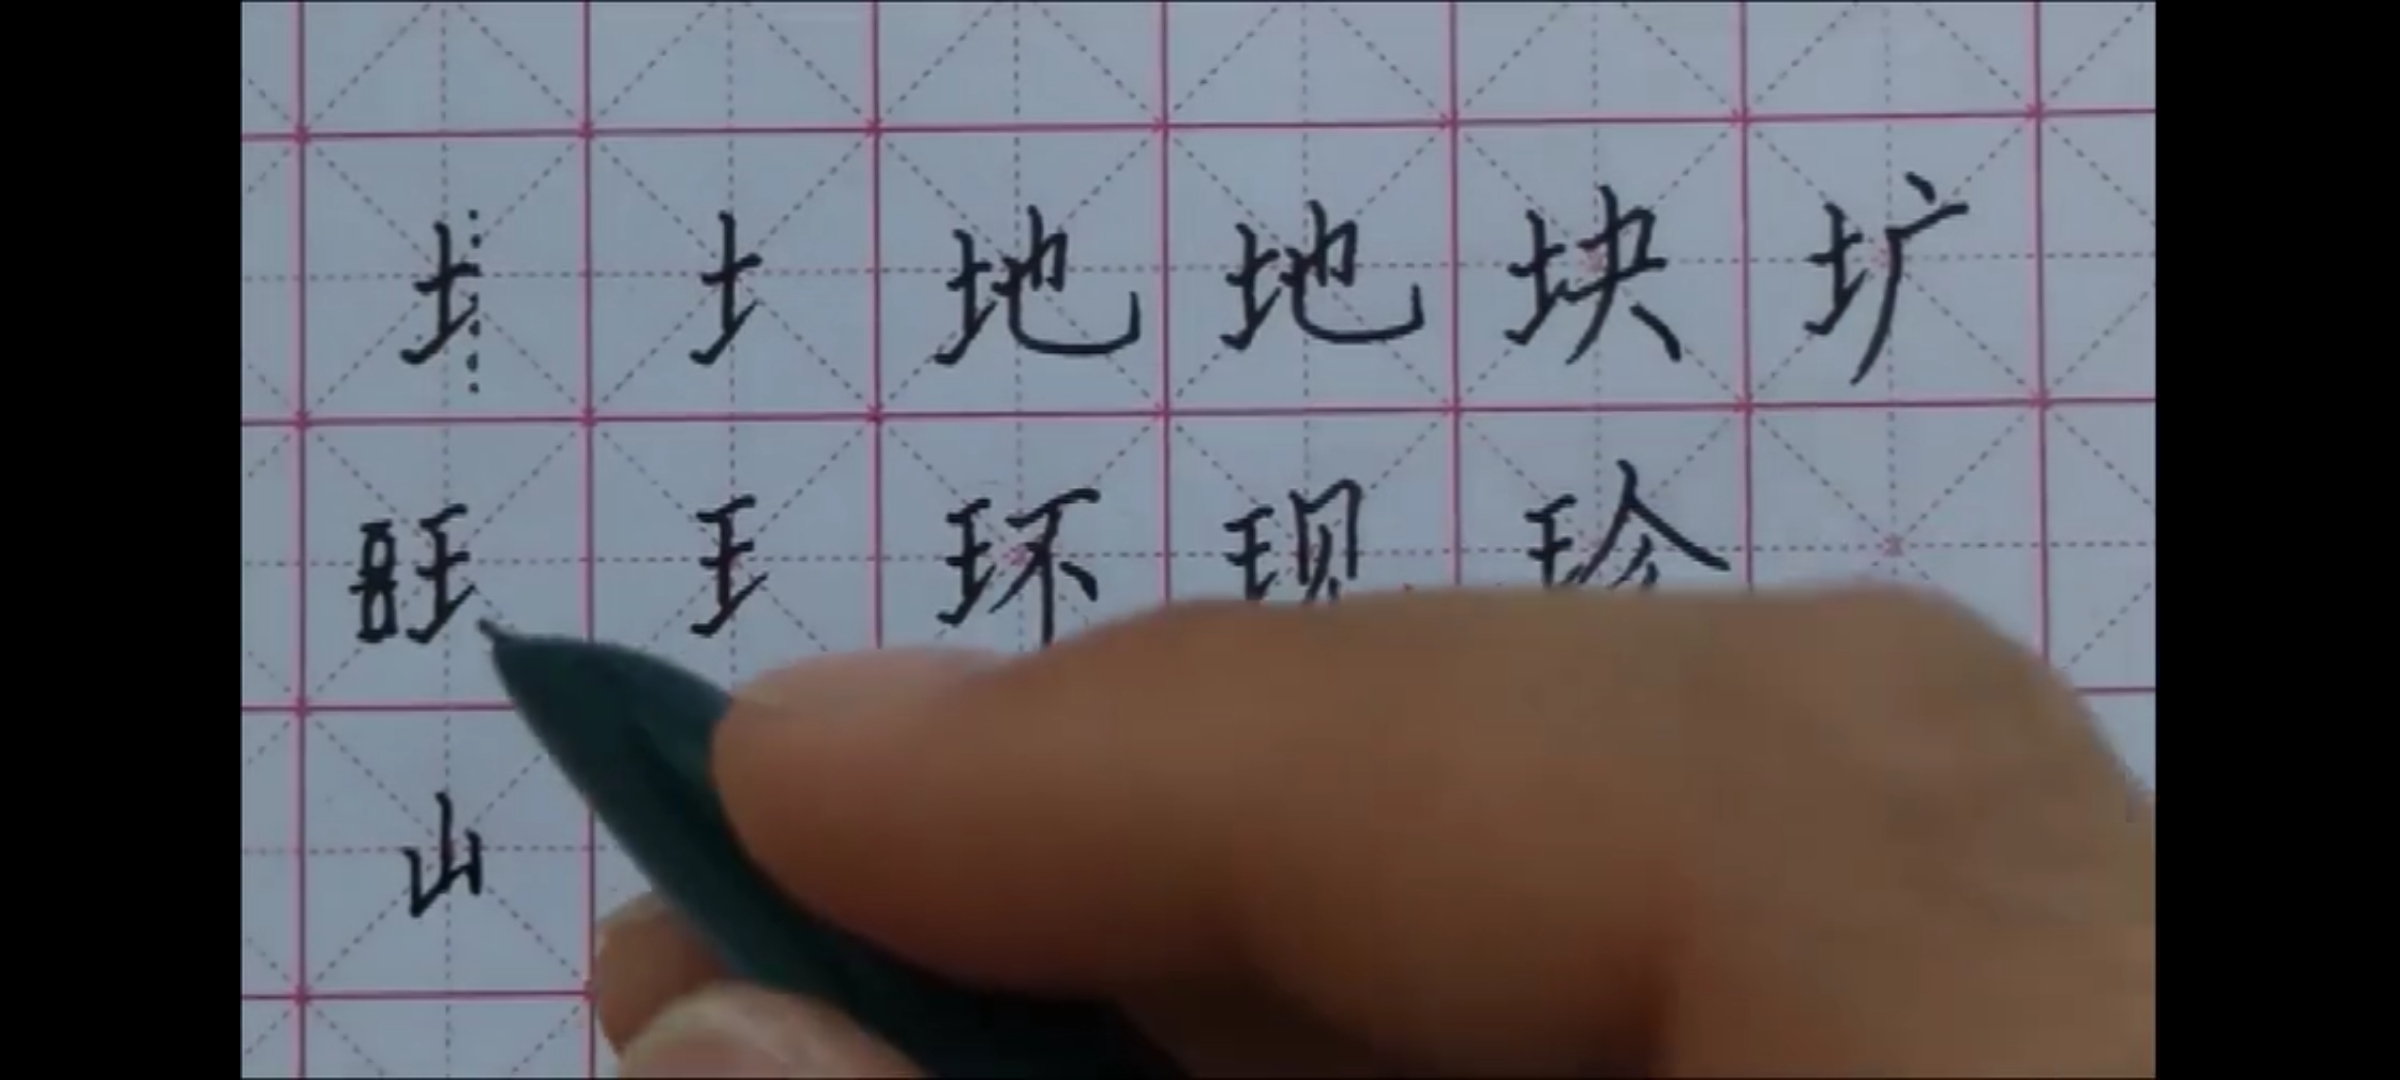 土 土 地 地 块 圹
王 王 环 现 珍
山